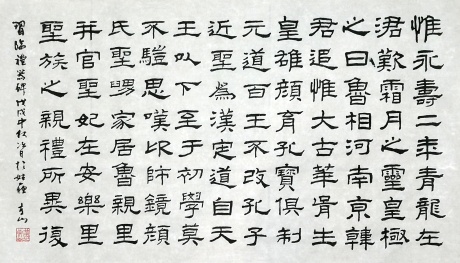 惟永壽二年青龍在
涒歎霜月之靈皇極
之日魯相河南京韓
君追惟大古華胥生
皇雄顏育孔寶俱制
元道百王不改孔子
近聖為漢定道自天
王以下至于初學莫
不驥思嘆卬師鏡顏
氏聖舅家居魯親里
并官聖妃在安樂里
聖族之親禮所異復
習臨禮器碑戊戌中秋 日於姑蘇